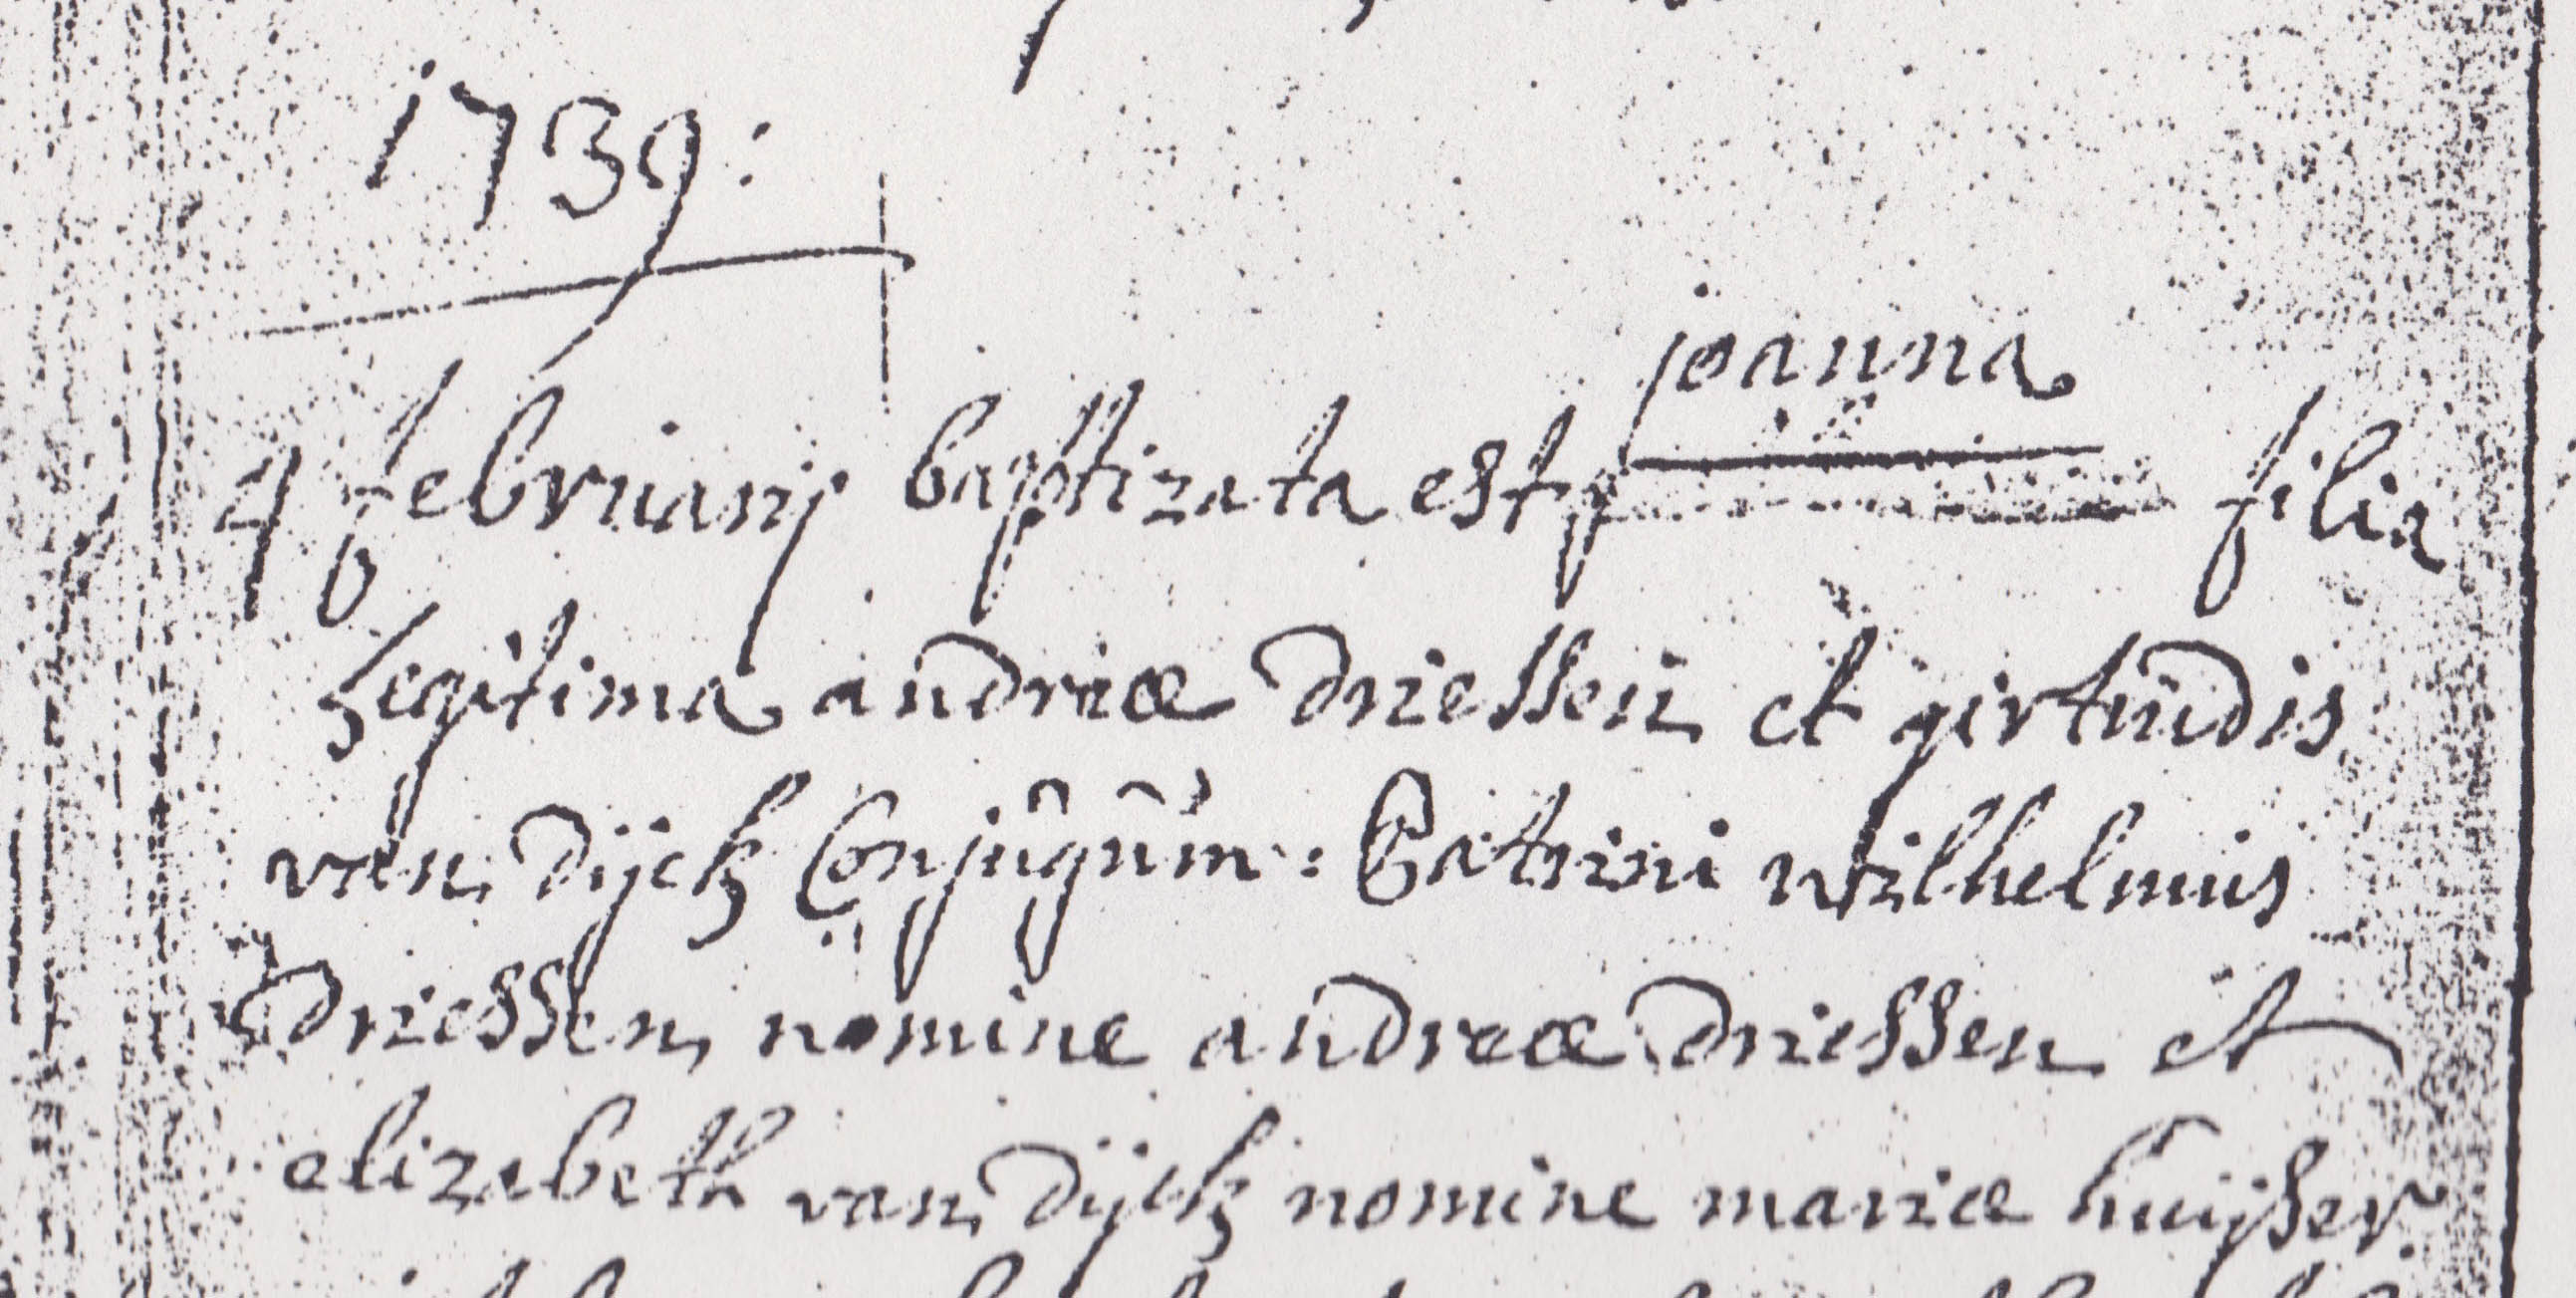 1739:
joanna
4 februarij baptizata est filia
legitima andreæ driessen et girtrudis
van dijck Conjugum: Patrini wilhelmus
driessen nomine andreæ driessen et
elizabeth van dijck nomine mariæ huijsser